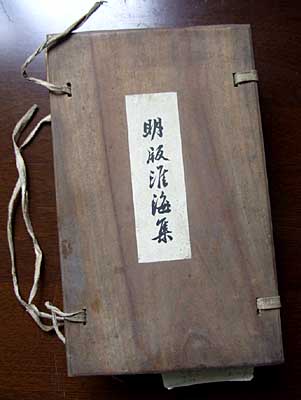 明版淮海集